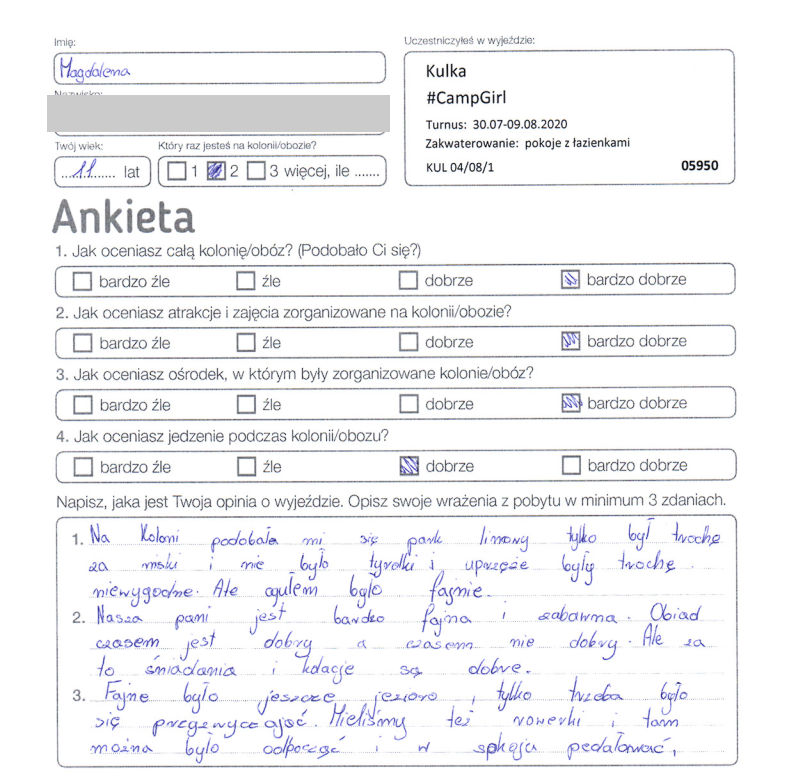 Imię:
Uczestniczyłeś w wyjeździe:
Magdalena
Kulka
#CampGirl
Turnus: 30.07-09.08.2020
Zakwaterowanie: pokoje z łazienkami
KUL 04/08/1 05950
Nazwisko:
Twój wiek:
Który raz jesteś na kolonii/obozie?
11 lat
1 2 3 więcej, ile .......
Ankieta
1. Jak oceniasz całą kolonię/obóz? (Podobało Ci się?)
bardzo źle źle dobrze bardzo dobrze
2. Jak oceniasz atrakcje i zajęcia zorganizowane na kolonii/obozie?
bardzo źle źle dobrze bardzo dobrze
3. Jak oceniasz ośrodek, w którym były zorganizowane kolonie/obóz?
bardzo źle źle dobrze bardzo dobrze
4. Jak oceniasz jedzenie podczas kolonii/obozu?
bardzo źle źle dobrze bardzo dobrze
Napisz, jaka jest Twoja opinia o wyjeździe. Opisz swoje wrażenia z pobytu w minimum 3 zdaniach.
1. Na Koloni podobała mi się park linowy tylko był trochę
za niski i nie było tyrolki i uprzęże były trochę
niewygodne. Ale ogulem było fajnie.
2. Nasza pani jest bardzo fajna i zabawna. Obiad
czasem jest dobry a czasem nie dobry. Ale za
to śniadania i kolacje są dobre.
3. Fajne było jeszcze jezioro, tylko trzeba było
się przyzwyczajać. Mieliśmy też rowerki i tam
można było odpocząć i w spokoju pedałować,